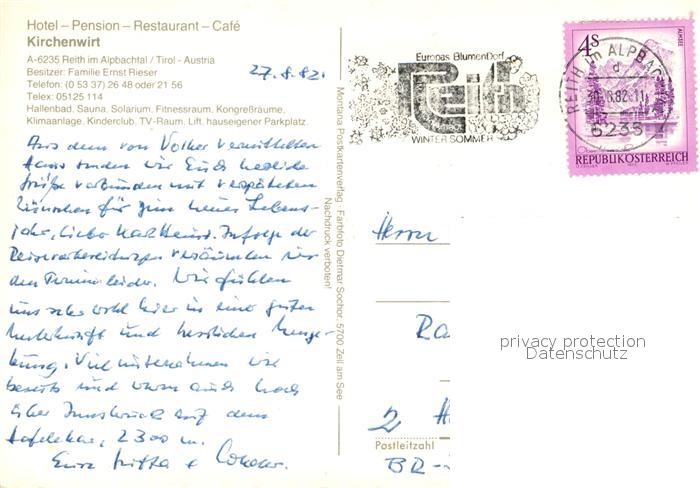 Hotel – Pension – Restaurant – Café
Kirchenwirt
A-6235 Reith im Alpbachtal / Tirol - Austria
Besitzer: Familie Ernst Rieser
Telefon: (0 53 37) 26 48 oder 21 56
Telex: 05125 114
Hallenbad, Sauna, Solarium, Fitnessraum, Kongreßräume,
Klimaanlage, Kinderclub, TV-Raum, Lift, hauseigener Parkplatz.
27.8.82.
Aus dem von Volker vermittelten
senden wir Euch herzliche
Grüße verbunden mit verspäteten
Wünschen für ein neues Lebens-
jahr, lieber Karlheinz. Infolge der
Reisevorbereitungen versäumten wir
den Termin leider. Wir fühlen
uns sehr wohl hier in einer guten
Unterkunft und herrlichen Umge-
bung. Viel unternahmen wir
bereits und waren auch hoch
über Innsbruck auf dem
Hafelekar, 2300 m.
Eure +
Montana Postkartenverlag Farbfoto Dietmar Sochor, 5700 Zell am See
Nachdruck verboten!
Europas BlumenDorf
Reith
WINTER SOMMER
REITH im ALPBACHTAL
d
30.8.82-11
6235
4S
ALMSEE
REPUBLIK ÖSTERREICH
Herrn
Ra
2 H
Postleitzahl
BR-
privacy protection
Datenschutz